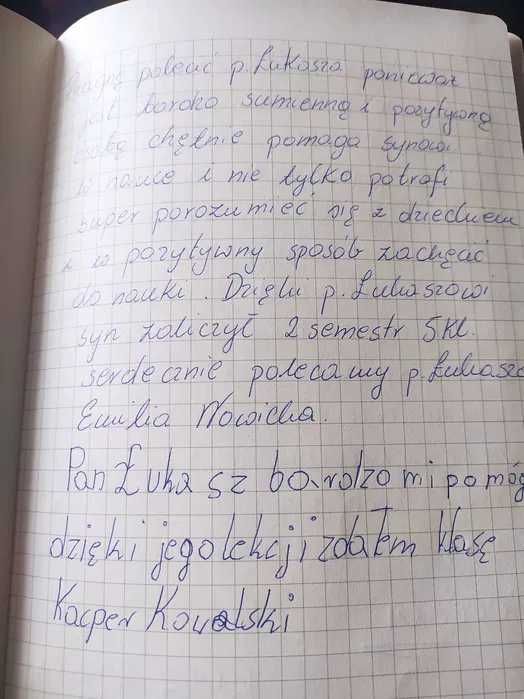 Pragnę polecić p. Łukasza ponieważ
jest bardzo sumienną i pozytywną
osobą chętnie pomaga synowi
w nauce i nie tylko potrafi
super porozumieć się z dzieckiem
i w pozytywny sposób zachęcić
do nauki. Dzięki p. Łukaszowi
syn zaliczył 2 semestr 5 kl.
serdecznie polecamy p. Łukasza
Emilia Nowicka.
Pan Łukasz bardzo mi pomóg
dzięki jego lekcji zdałem klasę
Kacper Kowalski